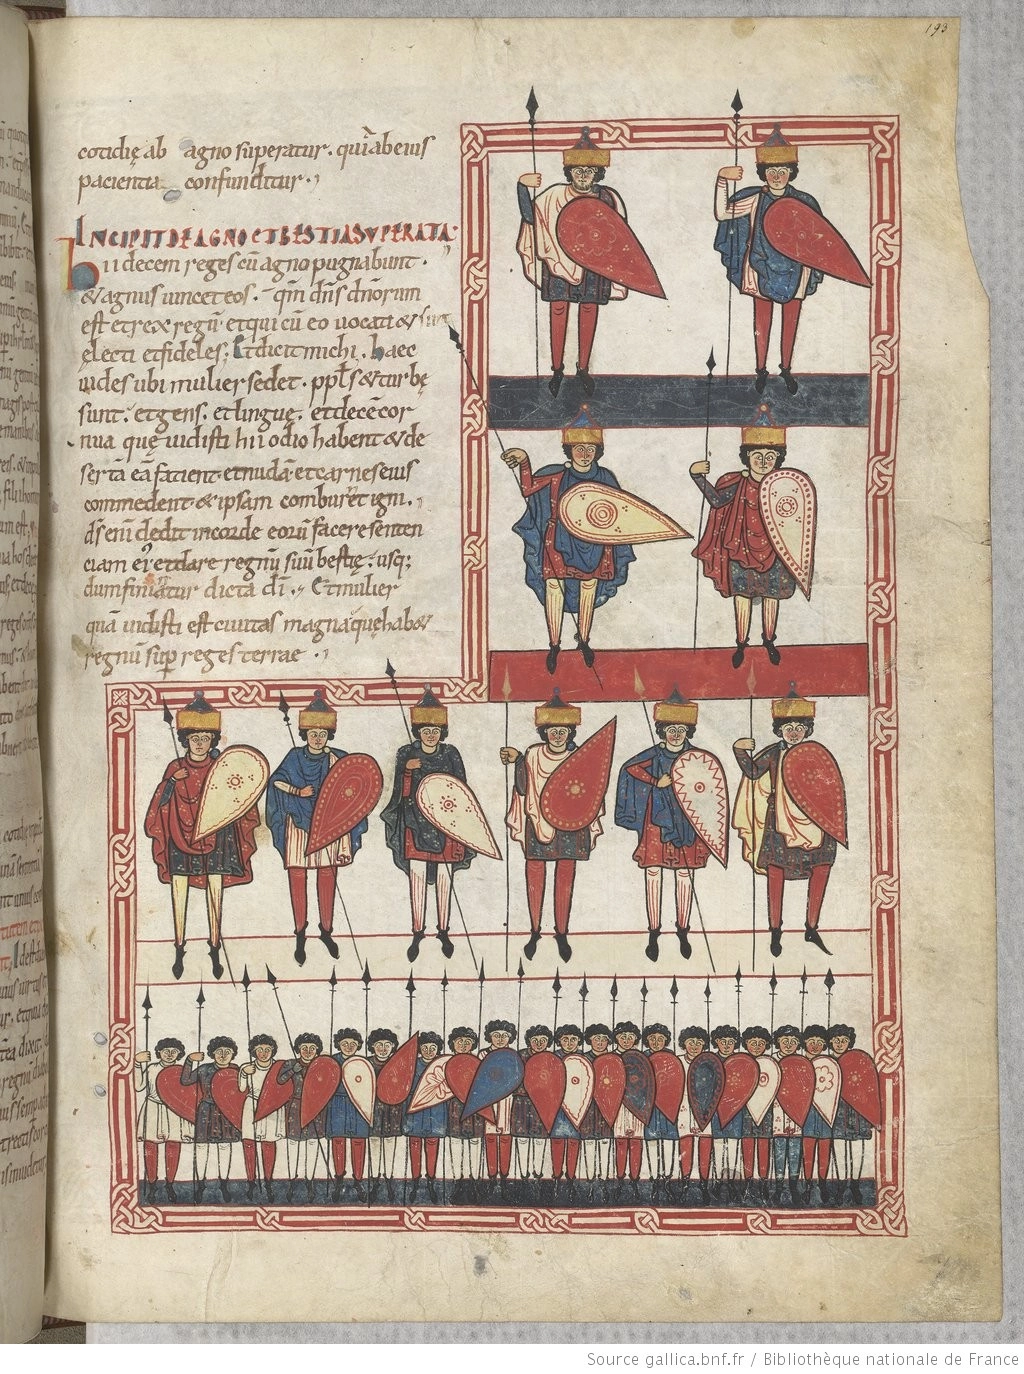 193
cotidię ab agno superatur. quia ab eius
pacientia confunditur.
INCIPIT DE AGNO ET BESTIA SUPERATA.
hii decem reges cū agno pugnabunt.
& agnus uincet eos. qm̄ dn̄s dn̄orum
est et rex regū. et qui cū eo uocati & sunt
ęlecti et fideles; Et dicit michi. haec
uides ubi mulier sedet. pp̄ls & turbę
sunt. et gens. et linguę. et decē cor
nua quę uidisti hii odio habent & de
sertā eā facient et nudā. et carnes eius
commedent & ipsam comburēt igni.
ds̄ enī dedit in corde eorū facere senten
ciam ei et dare regnū suū bestię. usq;
dum finiatur dicta dī. Et mulier
quā uidisti est ciuitas magna quę hab&
regnū sup reges terrae.
Source gallica.bnf.fr / Bibliothèque nationale de France